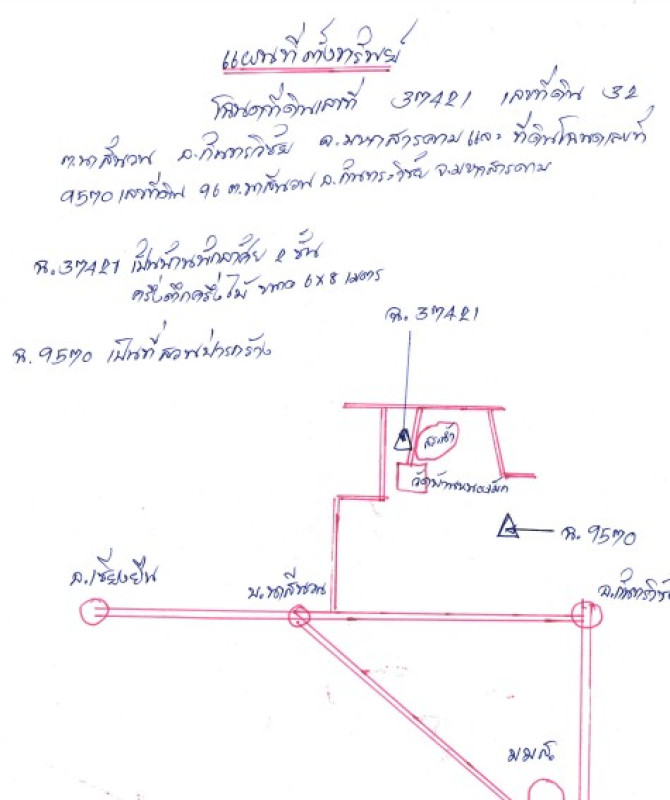 แผนที่ตั้งทรัพย์
โฉนดที่ดินเลขที่ 37421 เลขที่ดิน 32
ต.นาสีนวน อ.กันทรวิชัย จ.มหาสารคาม และ ที่ดินโฉนดเลขที่
9570 เลขที่ดิน 96 ต.นาสีนวน อ.กันทรวิชัย จ.มหาสารคาม
ฉ.37421 เป็นบ้านพักอาศัย 2 ชั้น
ครึ่งตึกครึ่งไม้ ขนาด 6x8 เมตร
ฉ.37421
ฉ.9570 เป็นที่สวนป่ารกร้าง
สระน้ำ
วัดบ้านหนอง
ฉ.9570
อ.เชียงยืน
บ.นาสีนวน
อ.กันทรวิชั
มมส